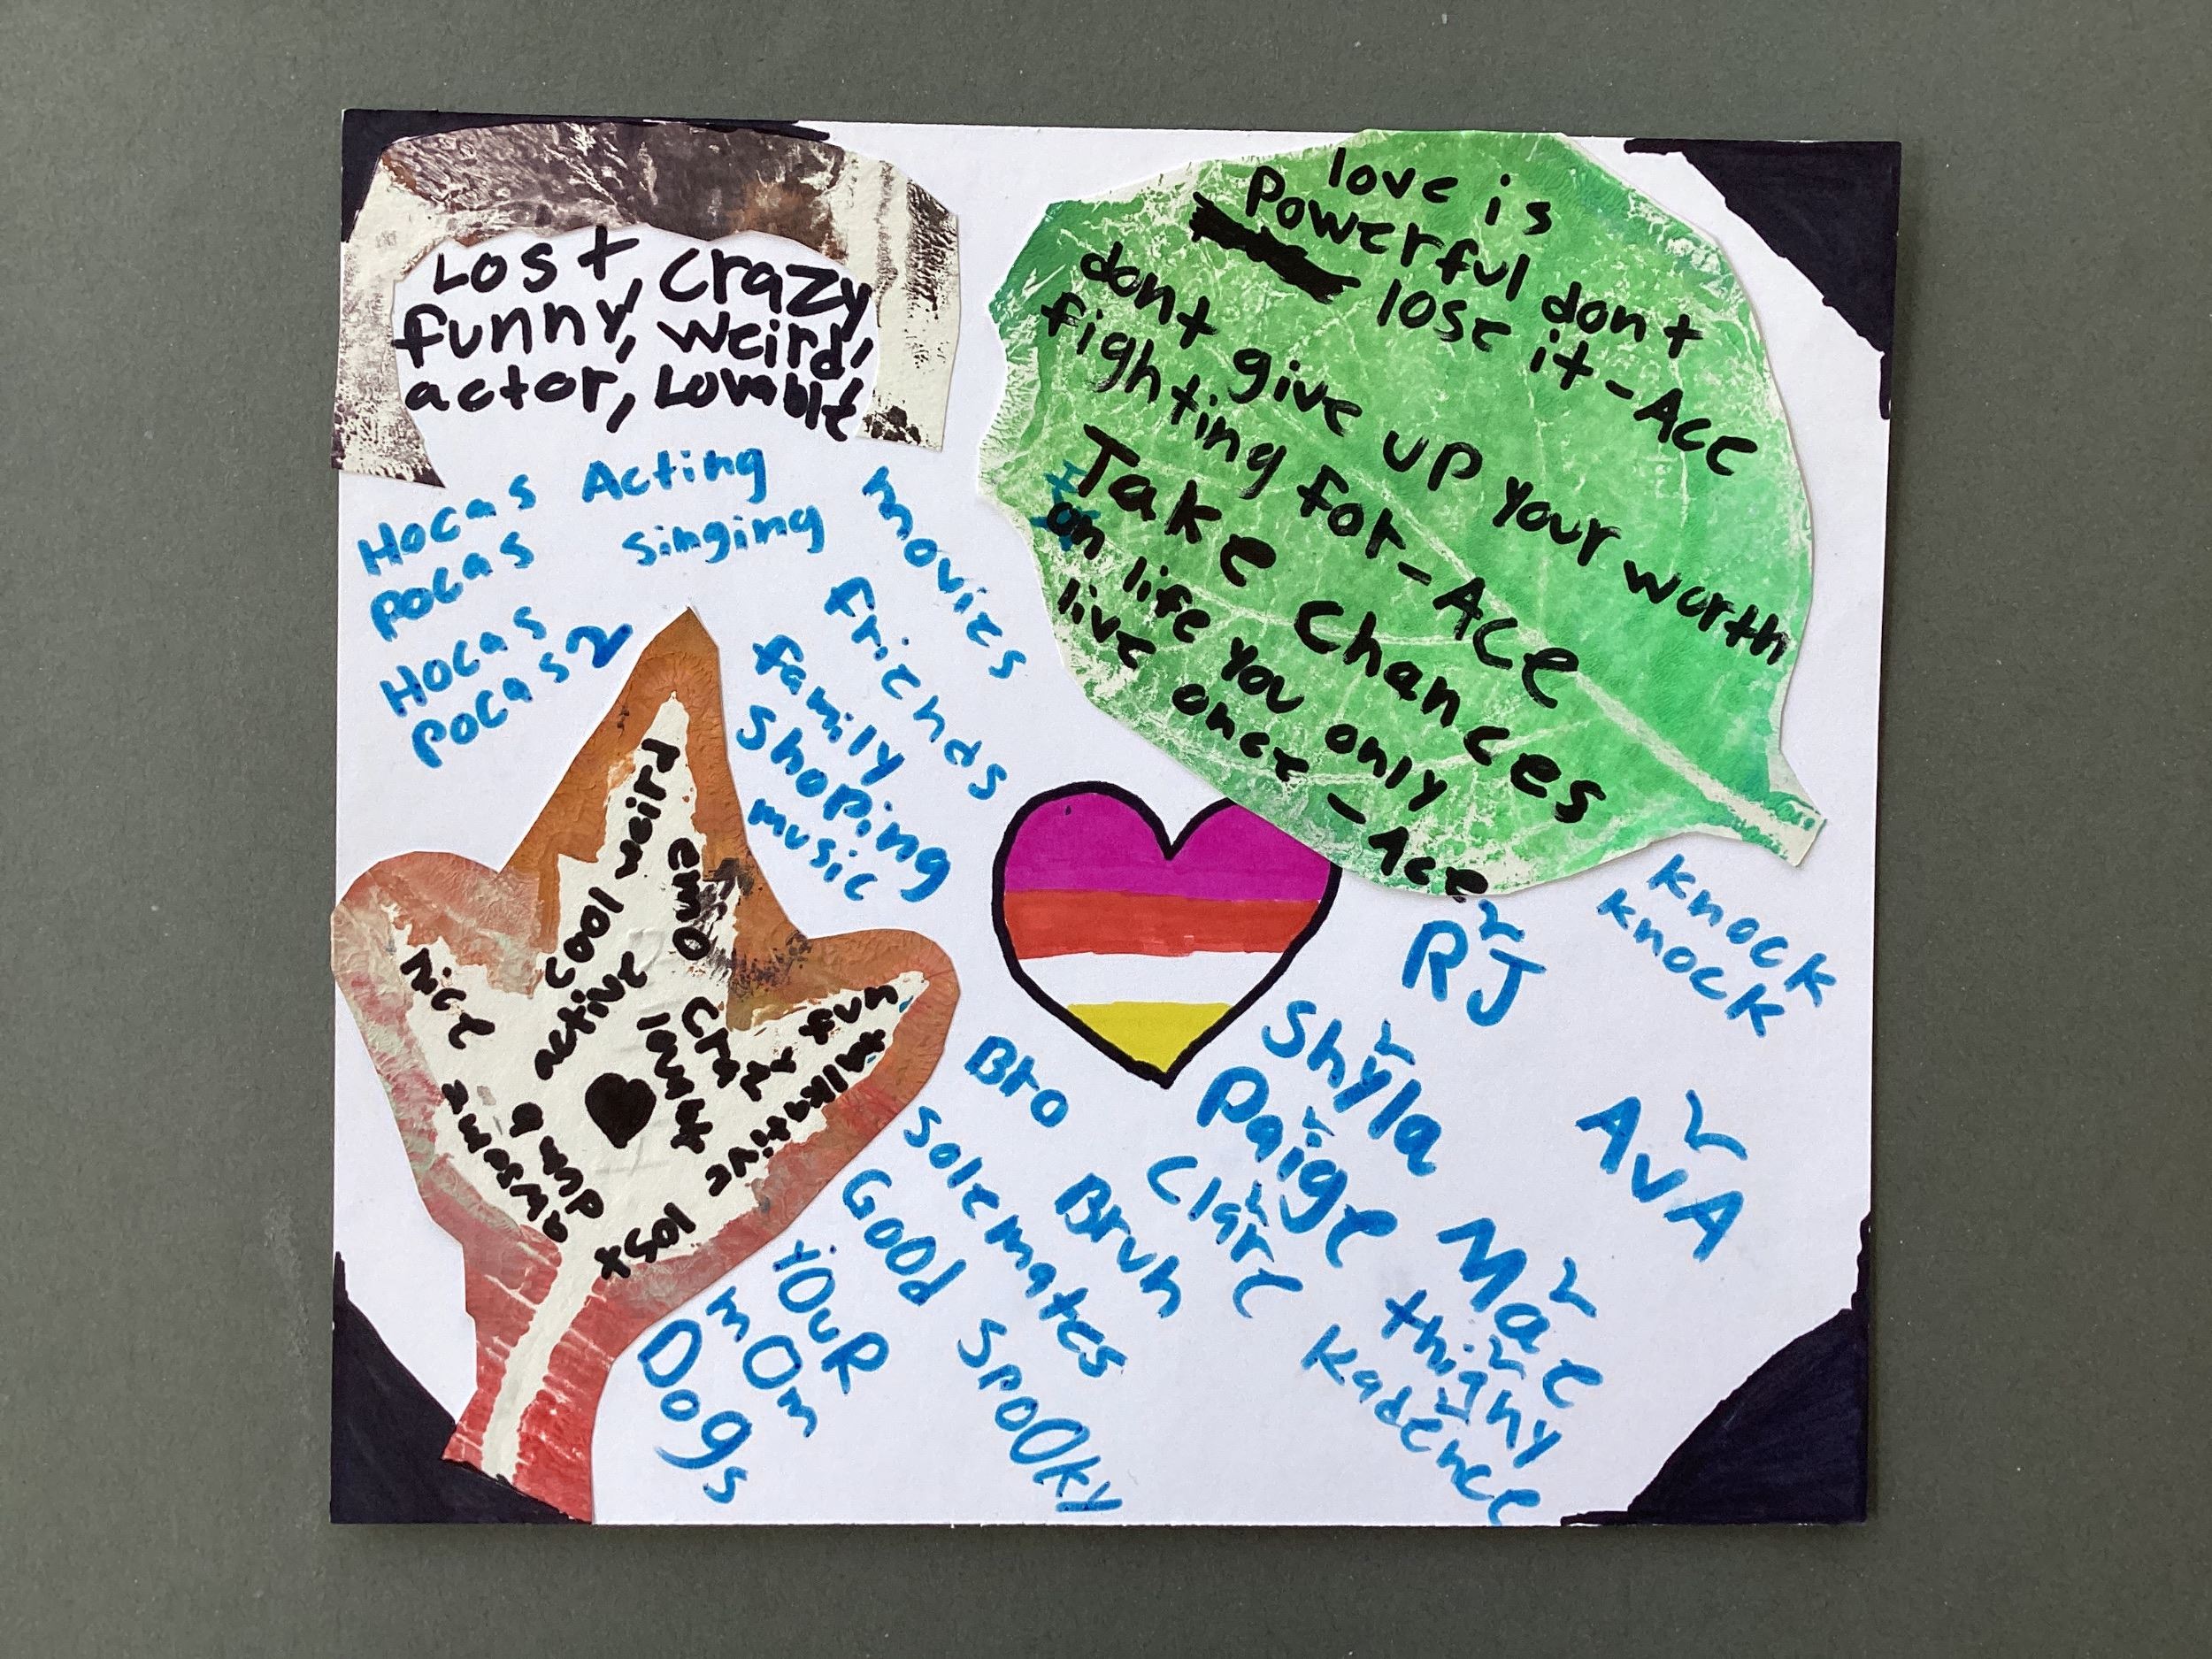 Lost, crazy
funny, weird,
actor, Lovable
love is
Powerful dont
lose it - Ace
dont give up your worth
fighting for - Ace
Take Chances
on life you only
live once
- Ace
Hocas
pocas
Hocas
pocas 2
Acting
singing
movies
friends
family
Shoping
music
weird
cool
active
emo
nice
awesome
fun
talkative
lost
RJ
knock
knock
Shyla
Paige
Clare
AvA
Mae
Kadence
Bro
Bruh
solemates
Good
Spooky
YOuR
mOm
Dogs